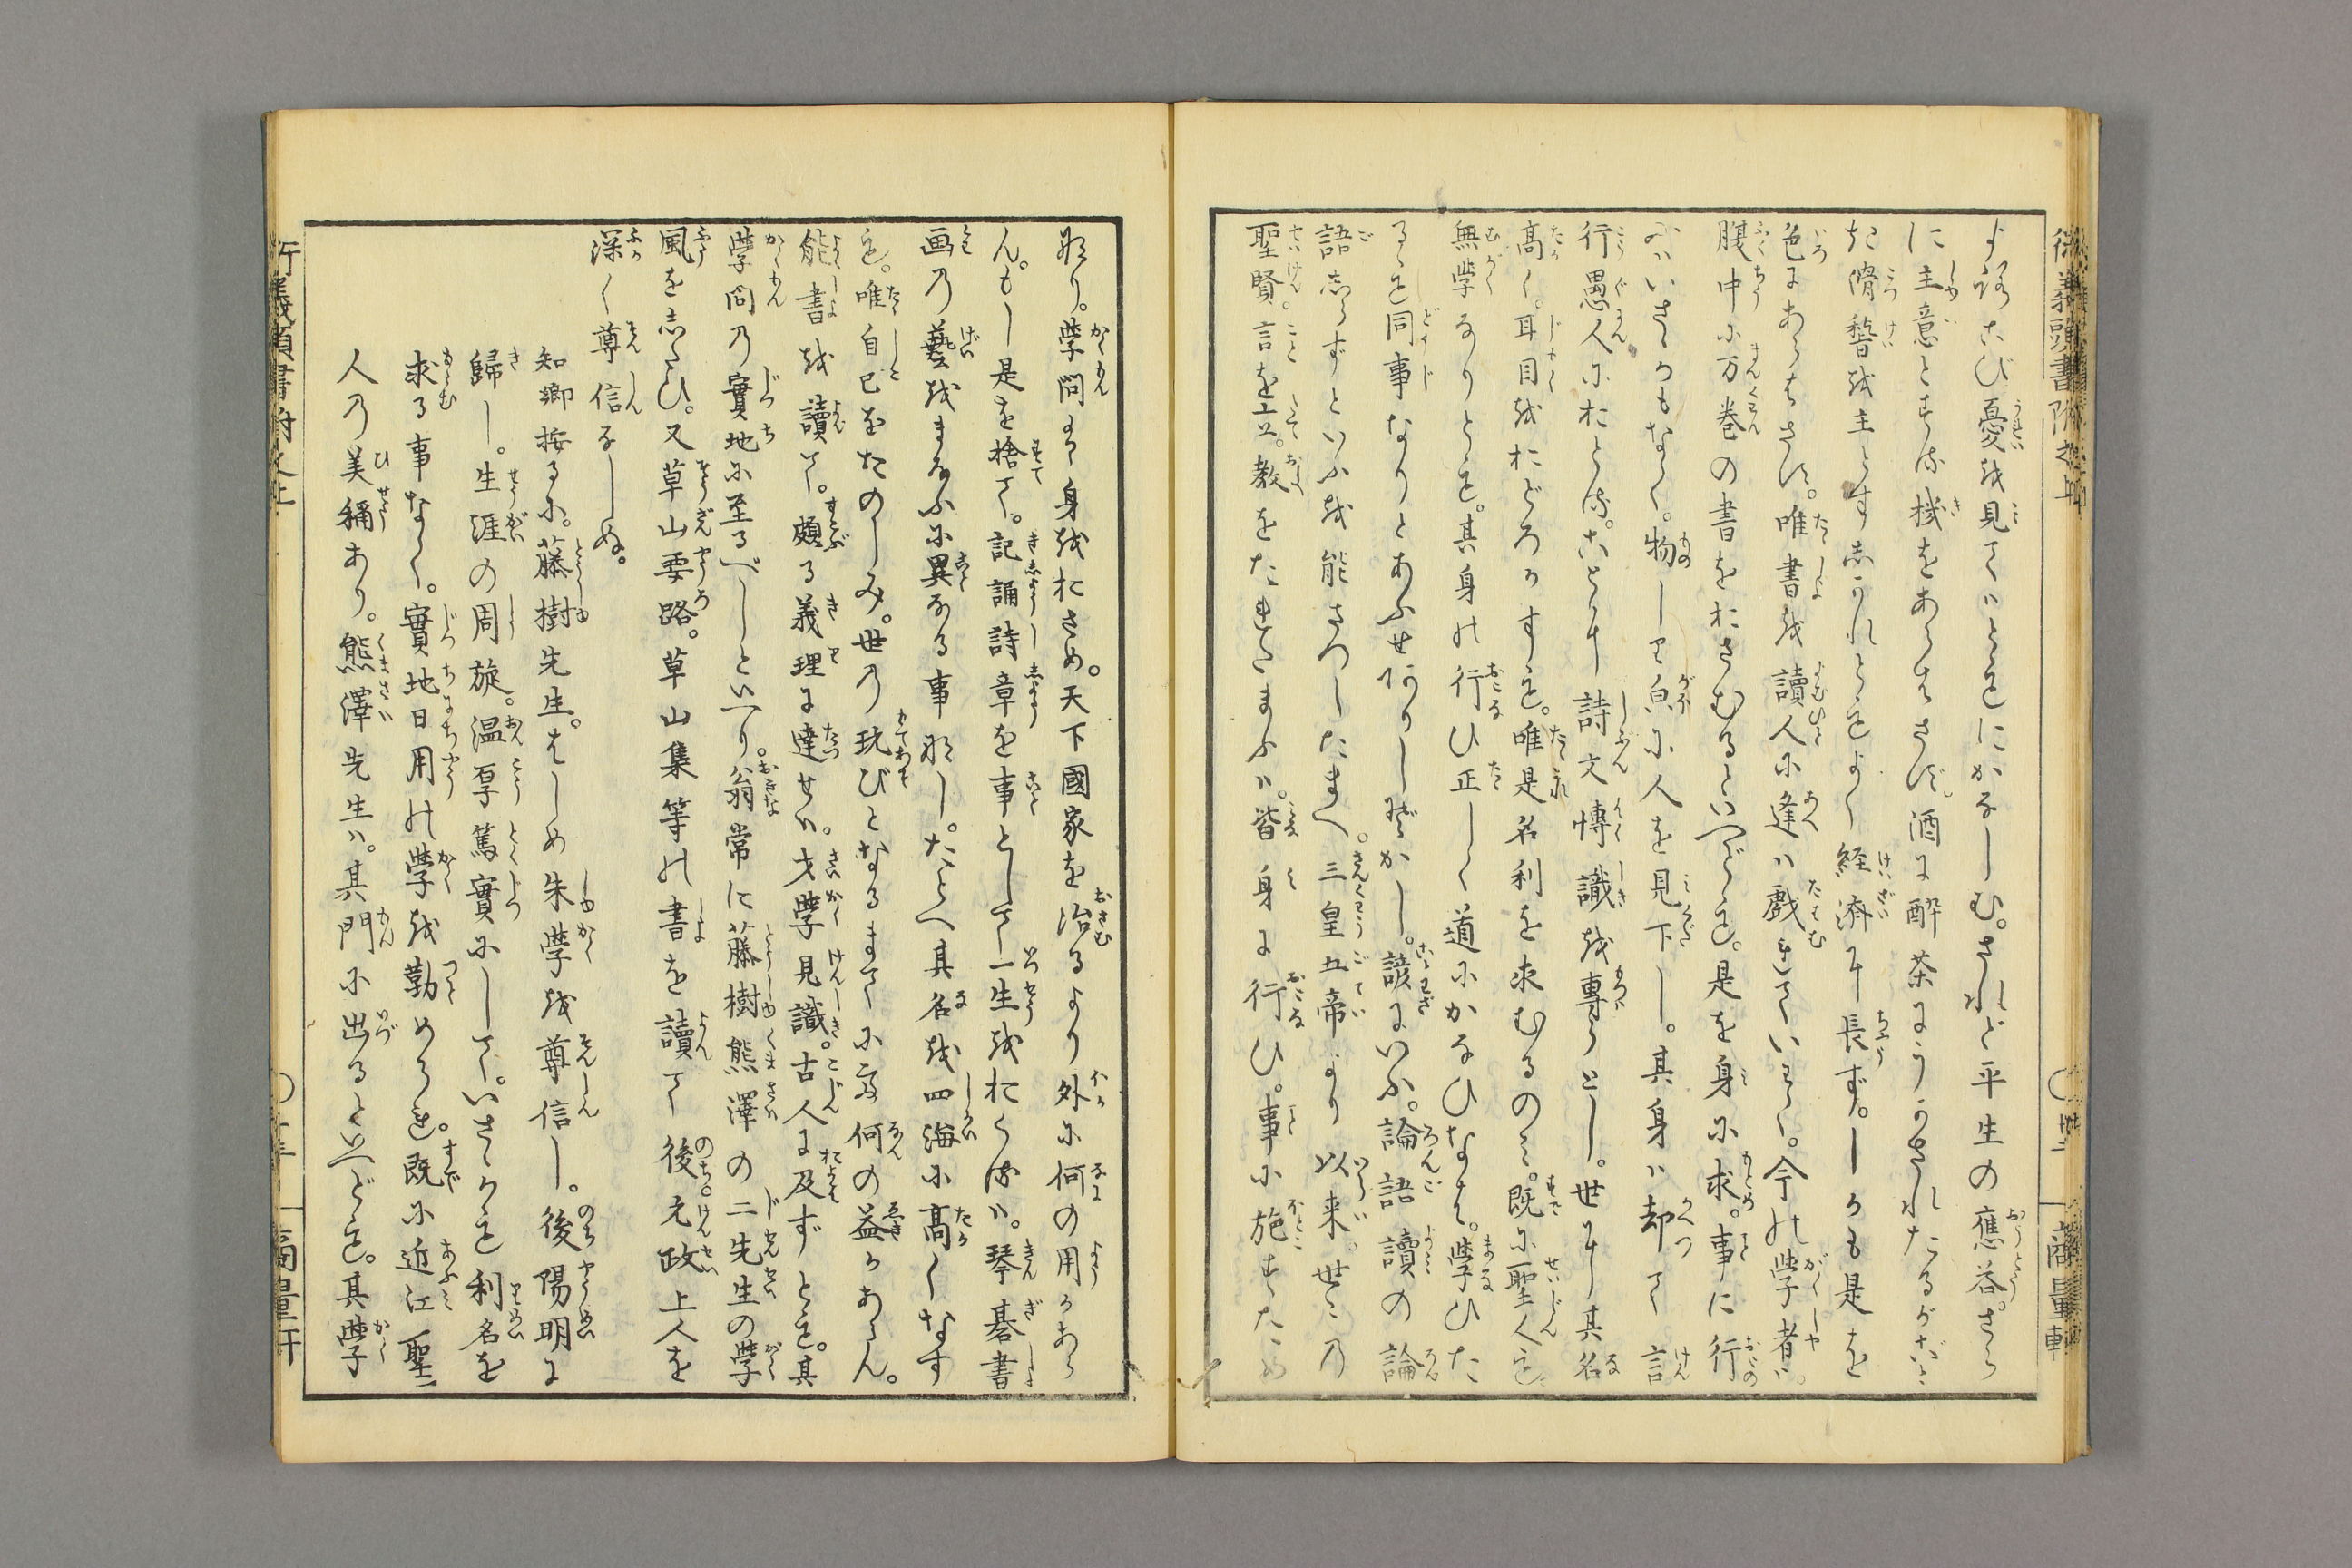 よろこび憂を見てハともにかなしむ。されど平生の應答。さら
に主意とする機をあらはさず。酒に酔茶にうかされたるがごとき
滑稽を主とす。しかれどもよく経済に長ず。しかも是を
色にあらはさず。唯書を讀人に逢ハ戯ていはく。今の学者ハ。
腹中に万巻の書をおさむるといへども。是を身に求。事に行
ふハいさゝかもなく。物しり㒵に人を見下し。其身ハ却て言
行愚人におとる。ことに詩文博識を專らとし。世に其名
高く。耳目をおどろかすも。唯是名利を求むるのミ。既に聖人も
無学なりとも。其身の行ひ正しく道にかなひなは。学ひた
るも同事なりとあふせ
諺にいふ。論語讀の論
語しらずといふを能さつしたまへ。三皇五帝より以来。世々乃
聖賢。言を立。教をたれたまふハ。皆身に行ひ。事に施すため
なり。学問ハ身をおさめ。天下國家を治るより外に何の用かあら
ん。もし是を捨て。記誦詩章を事として一生をおくるハ。琴碁書
画の藝をまなふに異なる事なし。たとへ其名を四海に高くなす
も。唯自己をたのしみ。世の玩びとなるまてにて何の益かあらん。
能書を讀て。頗る義理に達せハ。才学見識。古人に及ずとも。其
学问の實地に至るべしといへり。翁常に藤樹熊澤の二先生の学
風をしたひ。又草山要路。草山集等の書を讀て後。元政上人を
深く尊信なしぬ。
知郷按るに。藤樹先生。はしめ朱学を尊信し。後陽明に
歸し。生涯の周旋。温厚篤實にして。いさゝかも利名を
求る事なく。實地日用の学を勤めらる。既に近江聖
人の美稱あり。熊澤先生ハ。其門に出るといへども。其学
商量軒